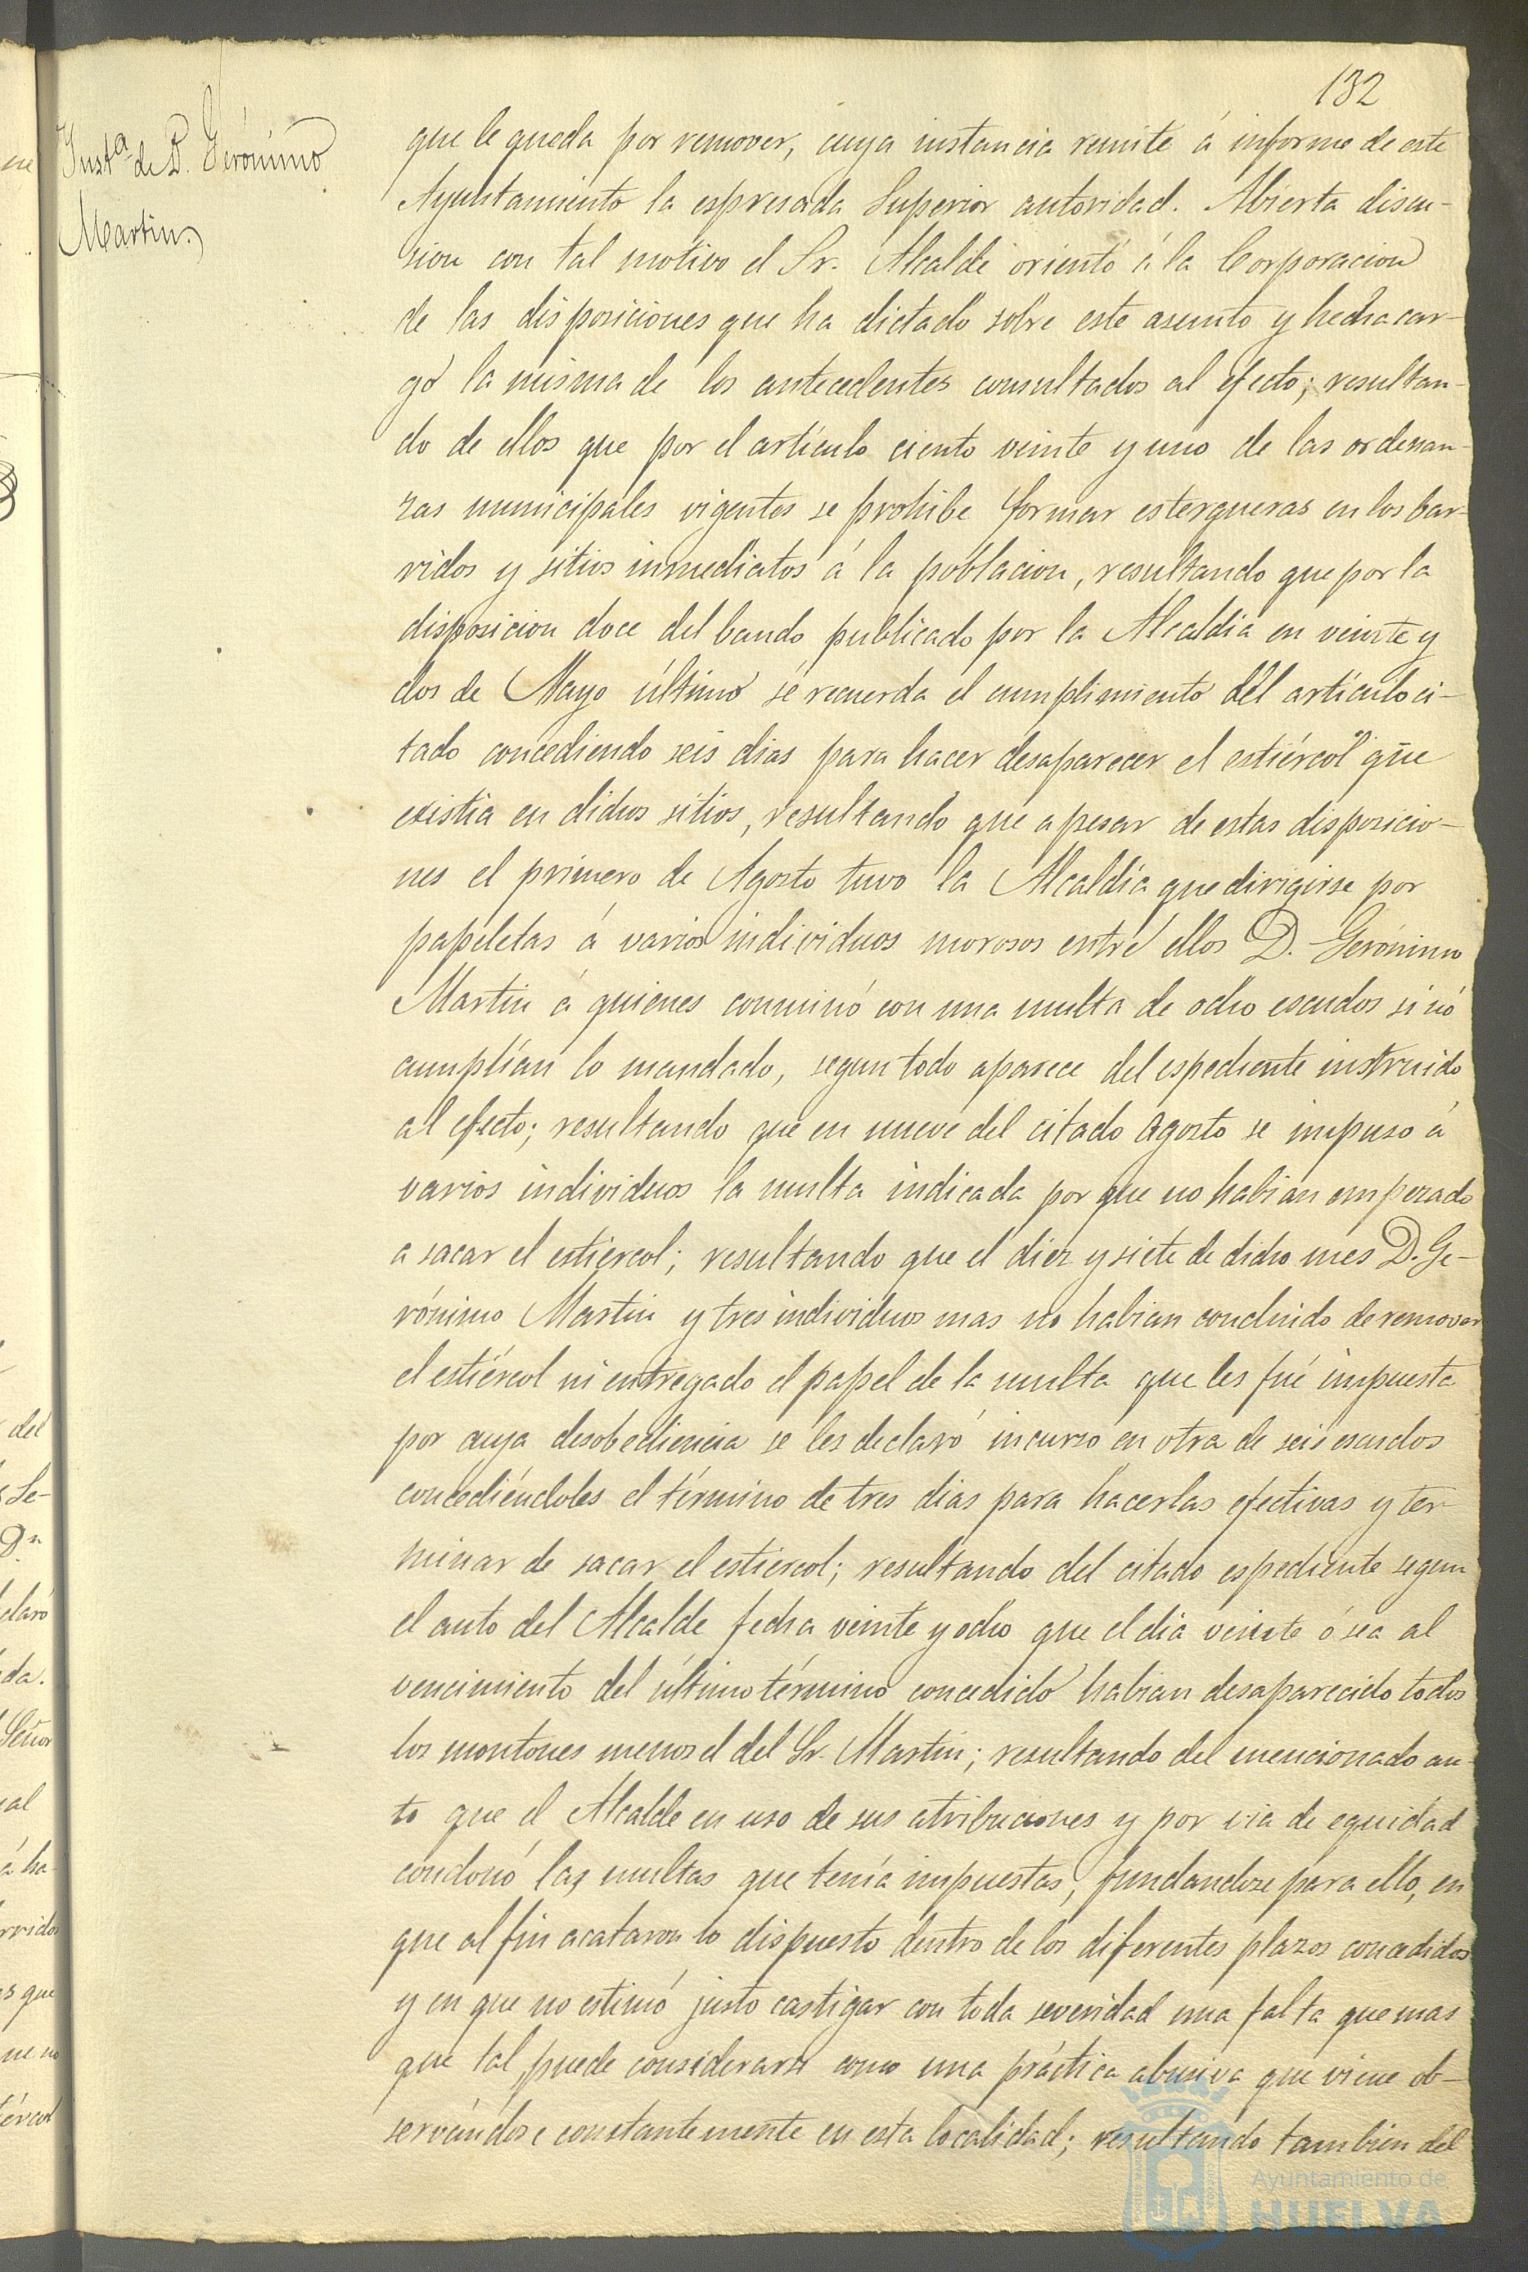 132
Inst.ª de D. Gerónimo
Martin.
que le queda por remover, cuya instancia remite á informe de este
Ayuntamiento la espresada Superior autoridad. Abierta discu-
sion con tal motivo el Sr. Alcalde orientó á la Corporacion
de las disposiciones que ha dictado sobre este asunto y hecha car-
go la misma de los antecedentes consultados al efecto; resultan-
do de ellos que por el artículo ciento veinte y uno de las ordenan-
zas municipales vigentes se prohibe formar estergueras en los bar-
ridos y sitios inmediatos á la poblacion, resultando que por la
disposicion doce del bando publicado por la Alcaldia en veinte y
dos de Mayo último se recuerda el cumplimiento del artículo ci-
tado concediendo seis dias para hacer desaparecer el estiércol que
existia en dichos sitios, resultando que apesar de estas disposicio-
nes el primero de Agosto tuvo la Alcaldía que dirigirse por
papeletas á varios individuos morosos entre ellos D. Gerónimo
Martin á quienes conminó con una multa de ocho escudos si nó
cumplían lo mandado, segun todo aparece del espediente instruido
al efecto; resultando que en nueve del citado Agosto se impuso á
varios individuos la multa indicada por que no habian empezado
a sacar el estiércol; resultando que el diez y siete de dicho mes D. Ge-
rónimo Martin y tres individuos mas no habian concluido de remover
el estiércol ni entregado el papel de la multa que les fué impuesta
por cuya desobediencia se les declaró incurso en otra de seis escudos
concediéndoles el término de tres dias para hacerlas efectivas y ter-
minar de sacar el estiércol; resultando del citado espediente segun
el auto del Alcalde fecha veinte y ocho que el dia veinte ó sea al
vencimiento del último término concedido habian desaparecido todos
los montones menos el del Sr. Martin; resultando del mencionado au-
to que el Alcalde en uso de sus atribuciones y por via de equidad
condonó las multas que tenía impuestas, fundandose para ello, en
que al fin acataron lo dispuesto dentro de los diferentes plazos concedidos
y en que no estimó justo castigar con toda severidad una falta que mas
que tal puede considerarse como una práctica abusiva que viene ob-
servándose constantemente en esta localidad; resultando tambien del
Ayuntamiento de
HUELVA